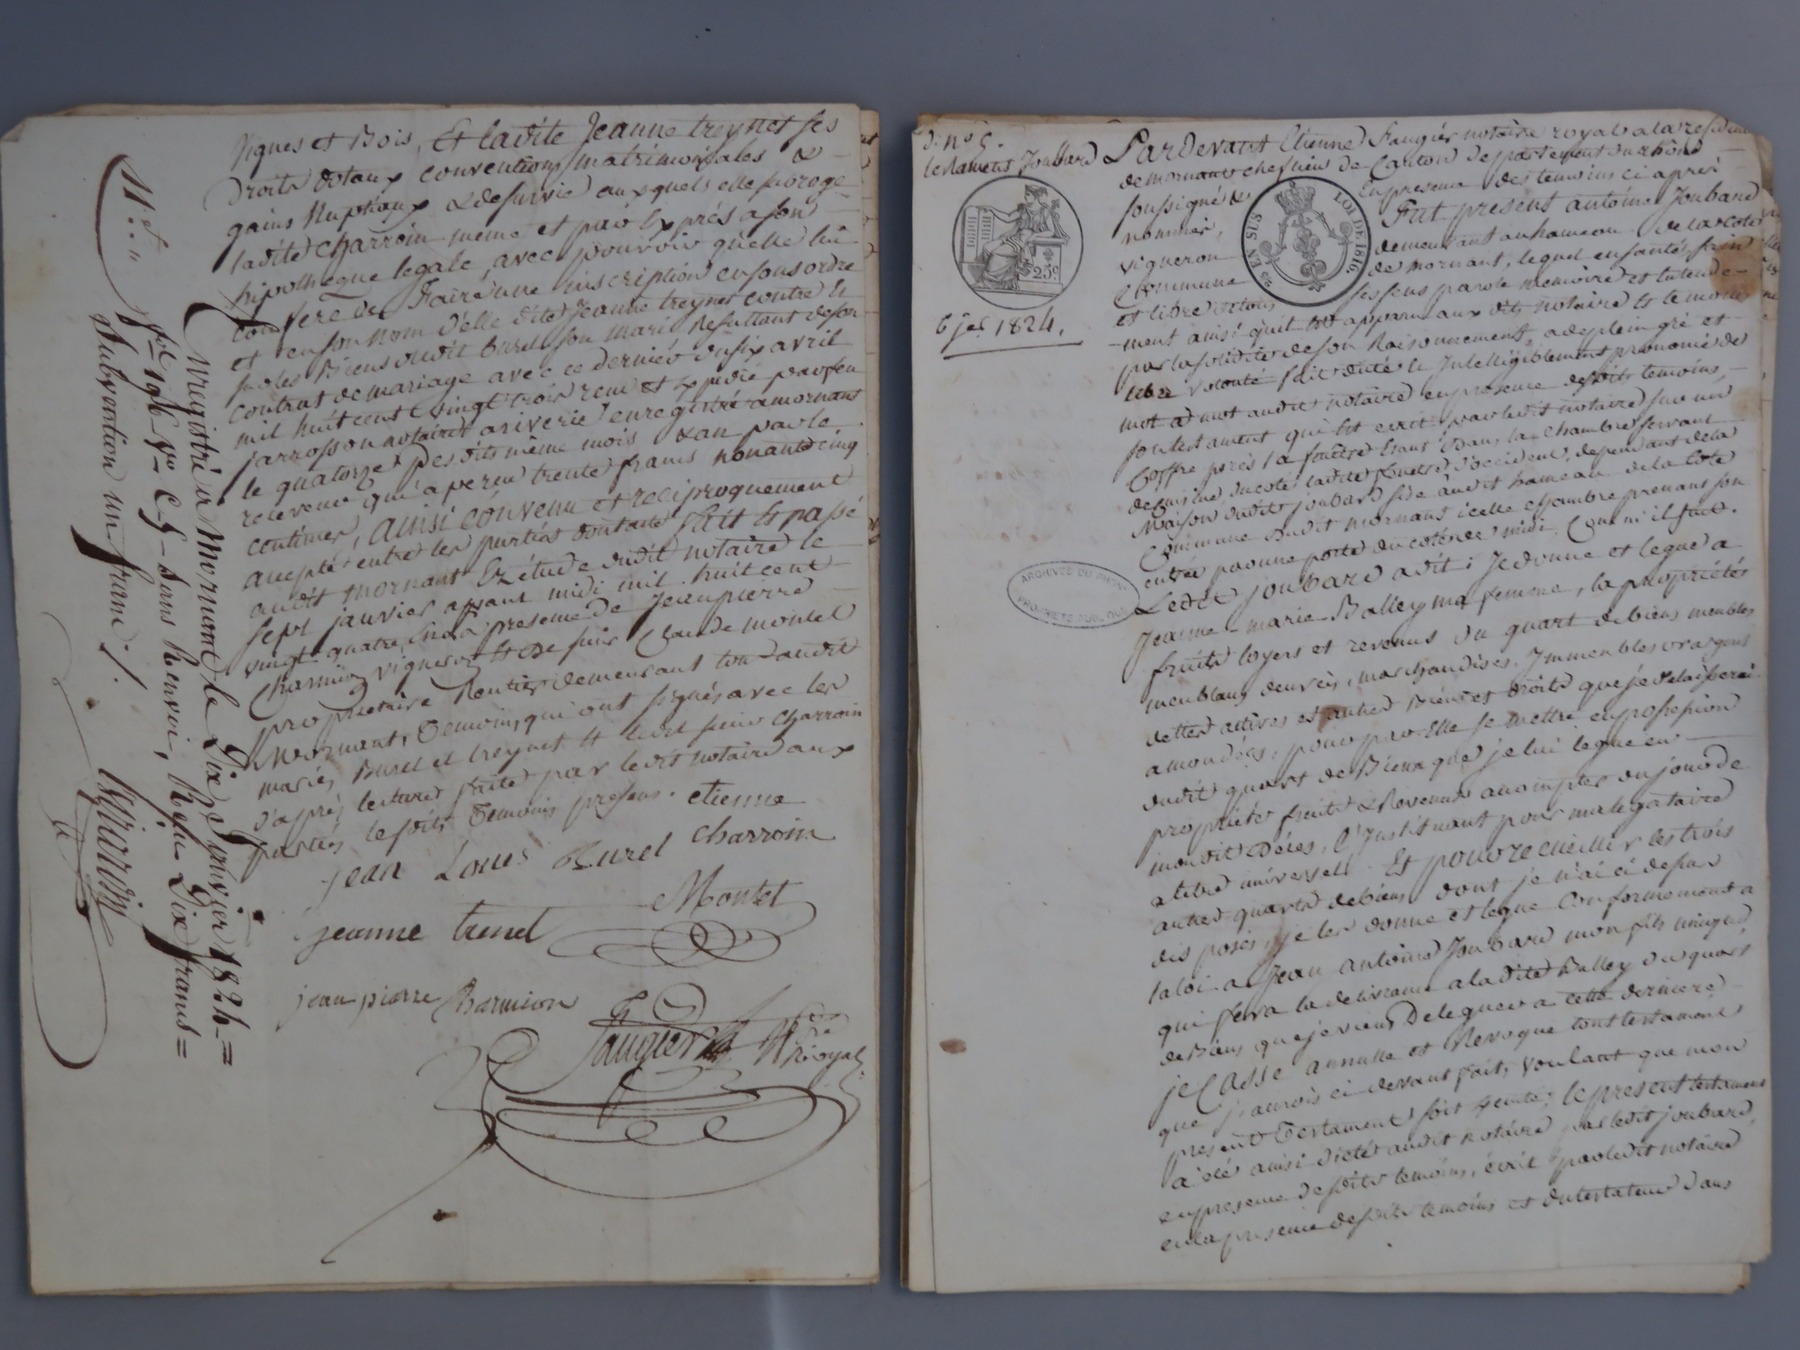 Vignes et Bois, Et ladite Jeanne treynet ses
Droits dotaux conventions matrimoniales &
gains Nuptiaux & de survie auxquels elle
ladite Charroin meme et par Exprés a son
hipotheque legale, avec pouvoir quelle lui
confere de Faire une inscription en sous ordre
et en son nom d'elle dite Jeanne treynet contre et
sur les Biens dudit Burel son mari Resultant de son
contrat de mariage avec ce dernier du six avril
mil huit cent vingt trois recu et Expedié par feu
jarrosson notaire a riverie enregistré a mornant
le quatorze des dits même mois & an par le
receveur qui a perçu trente francs nonante cinq
centimes, Ainsi convenu et reciproquement
accepté entre les parties dont acte Fait et passé
audit Mornant Ez étude dudit notaire le
sept janvier avant midi mil huit cent
vingt quatre, En la presence de Jean pierre
Charmion vigneron et de sieur Claude montel
proprietaire Rentier demeurant tous audit
Mornant, temoins qui ont signés avec les
mariés Burel et treynet et ledit sieur Charroin
d'après lecture faite par ledit notaire aux
parties les dits temoins presens. etienne
jean Louis Burel Charroin
Montel
jeanne trenet
jean pierre Charmion
Faugier
Nre Royal
11
Enregistré à Mornant le Dix Janvier 1824=
fol 196 Vo C 5 Sans Renvoi, Reçu Dix francs=
Subvention un franc /.
d. no 5.
testament Joubard
25c
6 jer 1824.
25 EN SUS
LOI DE 1816
Pardevant Etienne Faugier notaire royal a la residence
de mornant chef lieu de Canton departement du rhône
soussigné & En presence des temoins ci après
nommés, Fut present antoine Joubard
vigneron demeurant au hameau de la Cote
Commune de Mornant, lequel en santé, sain
et libre de tous ses sens parole memoire et entende-
-ment ainsi qu'il est apparu aux dits notaire et temoins
par la solidité de son Raisonnement, a de plein gré et
libre volonté fait dicté et Intelligiblement prononcé de
mot a mot audit notaire en presence desdits temoins,
son testament qui est ecrit par ledit notaire sur un
Coffre près la fenêtre Etant Dans la Chambre servant
de cuisine du coté ladite fenêtre d'occident, dependant de la
Maison dudit joubard size audit hameau de la Cote
Commune dudit mornant icelle chambre prenant son
entrée par une porte du coté de midi. Comme il suit.
Ledit joubard a dit: Je donne et legue a
Jeanne-marie Balley ma femme, la propriétés
fruits loyers et revenus du quart de biens meubles
meublans denrées, marchandises, Immeubles or argent
dettes actives et autres Biens et droits que je delaisserai
a mon décès; pour par Elle se mettre en possession
dudit quart de Biens que je lui legue en
propriétés fruits & Revenus a compter du jour de
mon dit Décès, l'Instituant pour ma legataire
a titre universel. Et pour recueillir les trois
autres quarts de biens dont je n'ai ci dessus
disposés, je les donne et legue Conformement a
la loi a Jean antoine Joubard mon fils unique,
qui fera la delivrance a la dite Balley du quart
de Biens que je viens De leguer a cette derniere
je Casse annulle et Revoque tout testament
que j'aurois ci devant fait, voulant que mon
present testament soit executé; le present testament
a été ainsi dicté audit notaire par ledit joubard,
en presence desdits temoins, écrit par ledit notaire
en la presence desdits temoins et du testateur Dans
ARCHIVES DU RHÔNE
PROPRIÉTÉ PUBLIQUE